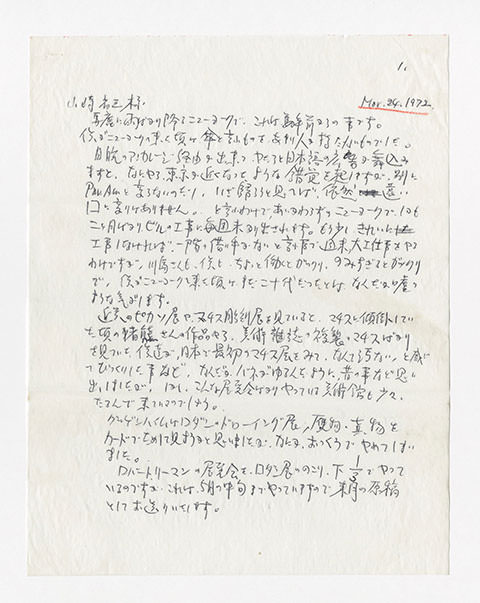 1.
山崎省三様
Mar. 24. 1972
馬鹿に雨ばかり降るニューヨークで、これは
僕がニューヨークへ来た頃は傘と言うものを、あまり人は持たんものでした。
日航のアンカレージ経由が出来て、やたらと日本語の が舞込み
ますと、なにやら、東京が近くなったような錯覚を起しますが、別に
Pan Amと変るなのだし、いざ帰ろうと思ってば、依然 遠い
口に変りはありません。と言うわけで、あいかわらずのニューヨークで、
二ヶ月ばかりビルの工事に毎週末かり出されます。もう少しきれいに
工事しなければ、一階の借手がないと言う事で、週末大工仕事をやる
わけですが、川島さんも、僕も、ちょっと働くとがっくり、すみすぎるとがっくり
で、僕がニューヨークに来た頃は、まだ二十代だったとは、なんだか嘘の
ような気がします。
近代のピカソ展や、マチス彫刻展を見ていると、マチスに傾倒してい
た頃の猪熊さんの作品やら、美術雑誌の複製、マチスばかり
を見ていた僕達が、日本で最初のマチス展をみて、なんて汚ない、と感じ
てびっくりした事など、なんだか、バネがゆるんだように、昔の事など思い
出しましたが、 こんな展覧会ばかりやっている美術館も少々、
たるんで来ているのでしょう。
グッゲンハイムはロダンのドローイング展、贋物・真物を
カードでたしかめて見ようかと思いましたが、なんとも、おっくうでやめてしまい
ました。
ロバートリーマンの展覧会を、ロダン展ののこり、下1/3でやって
いるのですが、これは、5月の中旬までやっていますので来月の原稿
としてお送りいたします。